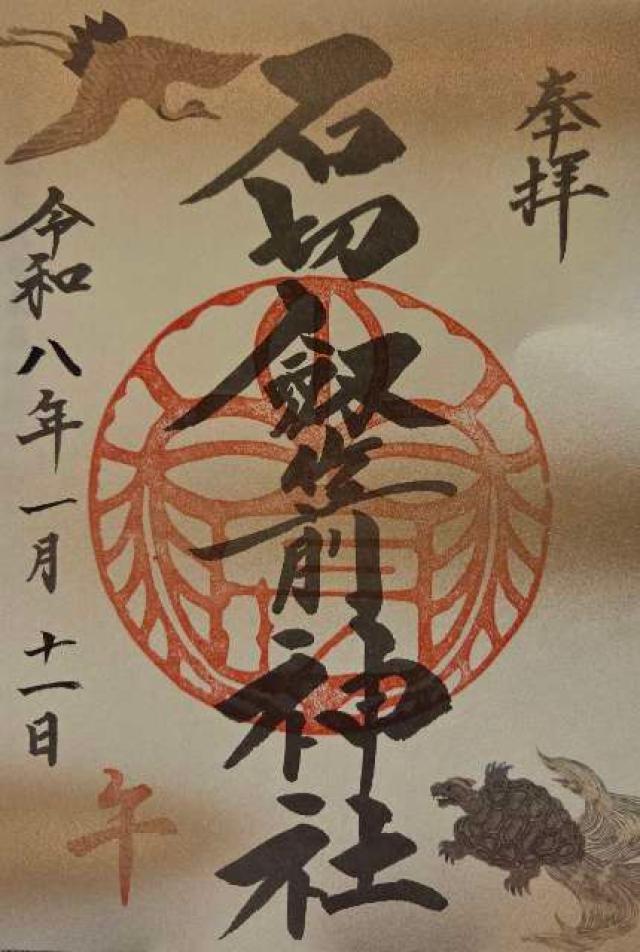 奉拝
石切劔箭神社
令和八年一月十一日
午